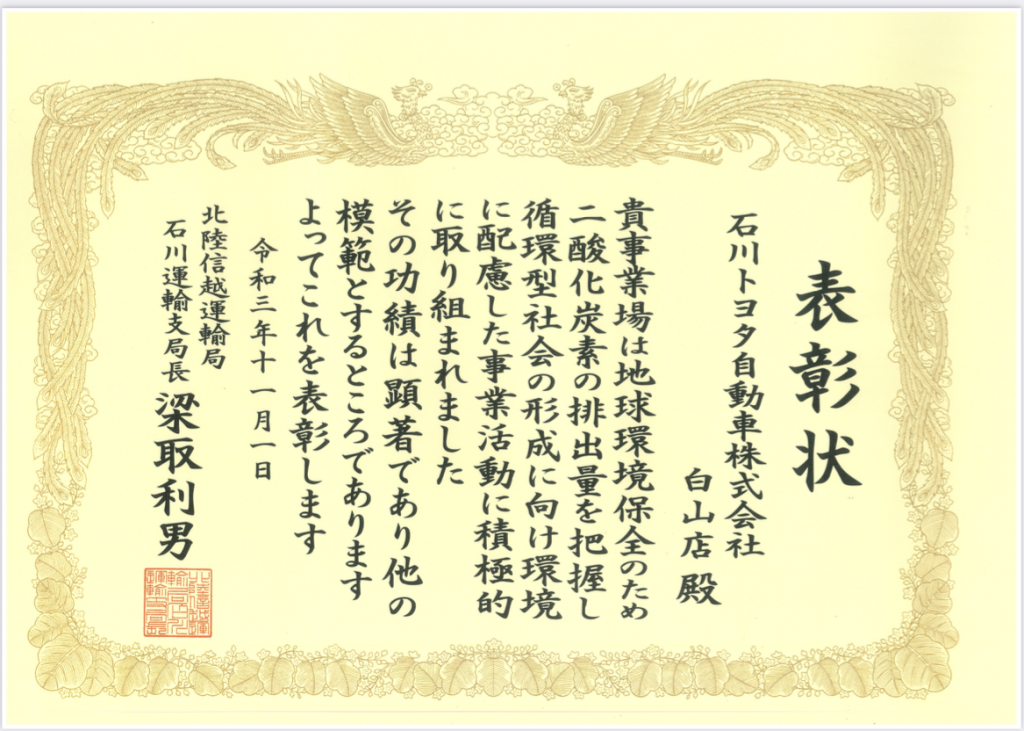 表彰状
石川トヨタ自動車株式会社
白山店 殿
貴事業場は地球環境保全のため
二酸化炭素の排出量を把握し
循環型社会の形成に向け環境
に配慮した事業活動に積極的
に取り組まれました
その功績は顕著であり他の
模範とするところであります
よってこれを表彰します
令和三年十一月一日
北陸信越運輸局
石川運輸支局長 梁取利男